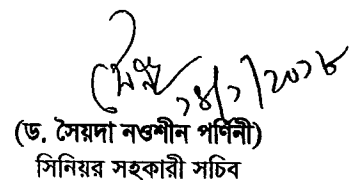 ১৪/১/২০১৮
(ড. সৈয়দা নওশীন পর্ণিনী)
সিনিয়র সহকারী সচিব